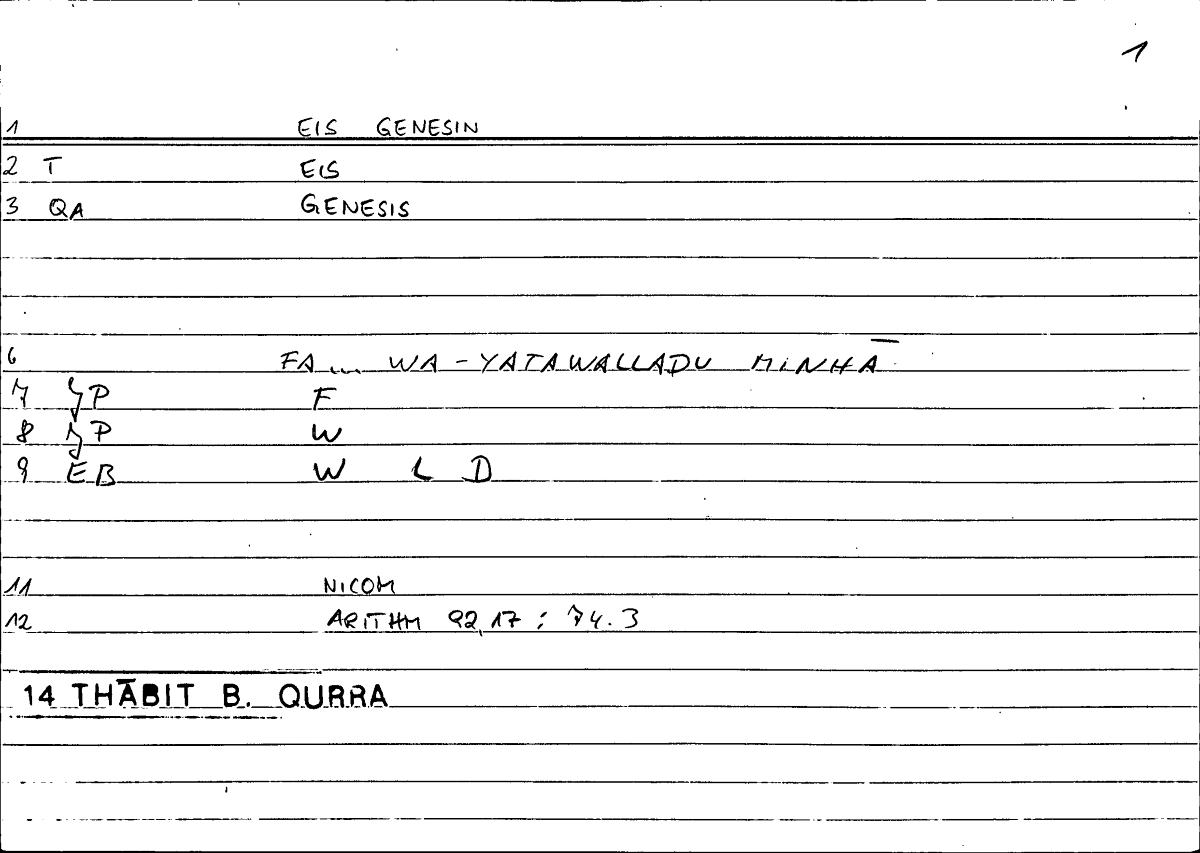 1
1 EIS GENESIN
2 T EIS
3 QA GENESIS
6 FA... WA-YATAWALLADU MINHĀ
7 P F
8 P W
9 EB W L D
11 NICOM
12 ARITHM 92,17 : 74.3
14 THĀBIT B. QURRA